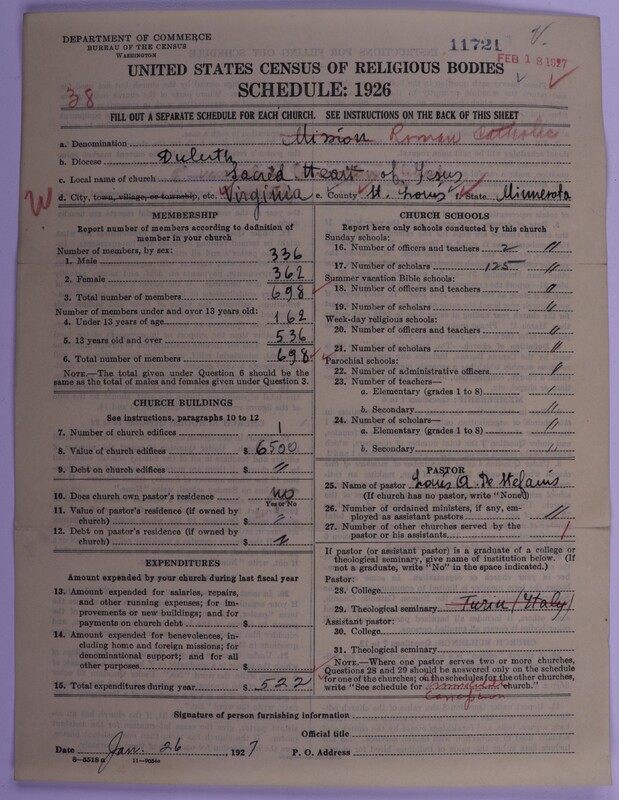 DEPARTMENT OF COMMERCE
BUREAU OF THE CENSUS
WASHINGTON
11721
FEB 18 1927
UNITED STATES CENSUS OF RELIGIOUS BODIES
SCHEDULE: 1926
38
FILL OUT A SEPARATE SCHEDULE FOR EACH CHURCH. SEE INSTRUCTIONS ON THE BACK OF THIS SHEET
a. Denomination Mission Roman Catholic
b. Diocese Duluth
c. Local name of church Sacred Heart of Jesus
W
d. City, town, village, or township, etc. Virginia e. County St. Louis f. State Minnesota
MEMBERSHIP
Report number of members according to definition of member in your church
Number of members, by sex:
1. Male 336
2. Female 362
3. Total number of members 698
Number of members under and over 13 years old:
4. Under 13 years of age 162
5. 13 years old and over 536
6. Total number of members 698
NOTE.—The total given under Question 6 should be the
same as the total of males and females given under Question 3.
CHURCH BUILDINGS
See instructions, paragraphs 10 to 12
7. Number of church edifices 1
8. Value of church edifices $ 6500
9. Debt on church edifices $ "
10. Does church own pastor's residence no
Yes or No
11. Value of pastor's residence (if owned by
church) $ "
12. Debt on pastor's residence (if owned by
church) $ "
EXPENDITURES
Amount expended by your church during last fiscal year
13. Amount expended for salaries, repairs,
and other running expenses; for im-
provements or new buildings; and for
payments on church debt $
14. Amount expended for benevolences, in-
cluding home and foreign missions; for
denominational support; and for all
other purposes $
15. Total expenditures during year $ 522
CHURCH SCHOOLS
Report here only schools conducted by this church
Sunday schools:
16. Number of officers and teachers 2 "
17. Number of scholars 125 "
Summer vacation Bible schools:
18. Number of officers and teachers "
19. Number of scholars "
Week-day religious schools:
20. Number of officers and teachers "
21. Number of scholars "
Parochial schools:
22. Number of administrative officers "
23. Number of teachers—
a. Elementary (grades 1 to 8) "
b. Secondary "
24. Number of scholars—
a. Elementary (grades 1 to 8) "
b. Secondary "
PASTOR
25. Name of pastor Louis A. De Stefanis
(If church has no pastor, write "None")
26. Number of ordained ministers, if any, em-
ployed as assistant pastors "
27. Number of other churches served by the
pastor or his assistants 1
If pastor (or assistant pastor) is a graduate of a college or
theological seminary, give name of institution below. (If
not a graduate, write "No" in the space indicated.)
Pastor:
28. College
29. Theological seminary Turin (Italy)
Assistant pastor:
30. College
31. Theological seminary
NOTE.—Where one pastor serves two or more churches,
Questions 28 and 29 should be answered only on the schedule
for one of the churches; on the schedules for the other churches,
write "See schedule for Immaculate church."
Conception
Signature of person furnishing information
Official title
Date Jan. 26, 1927 P. O. Address
8—5518 a 11—9034a